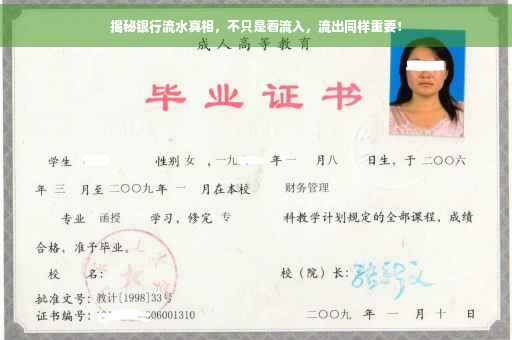 揭秘银行流水真相，不只是看流入，流出同样重要！
成人高等教育
毕业证书
学生 性别 女 ，一九 年 一 月八 日生，于 二〇〇六
年 三 月至 二〇〇九 年 一 月在本校 财务管理
专业 函授 学习，修完 专 科教学计划规定的全部课程，成绩
合格，准予毕业。
校 名： 校（院）长：
批准文号：教计[1998]33号
证书编号： 06001310 二〇〇九 年 一 月 十 日